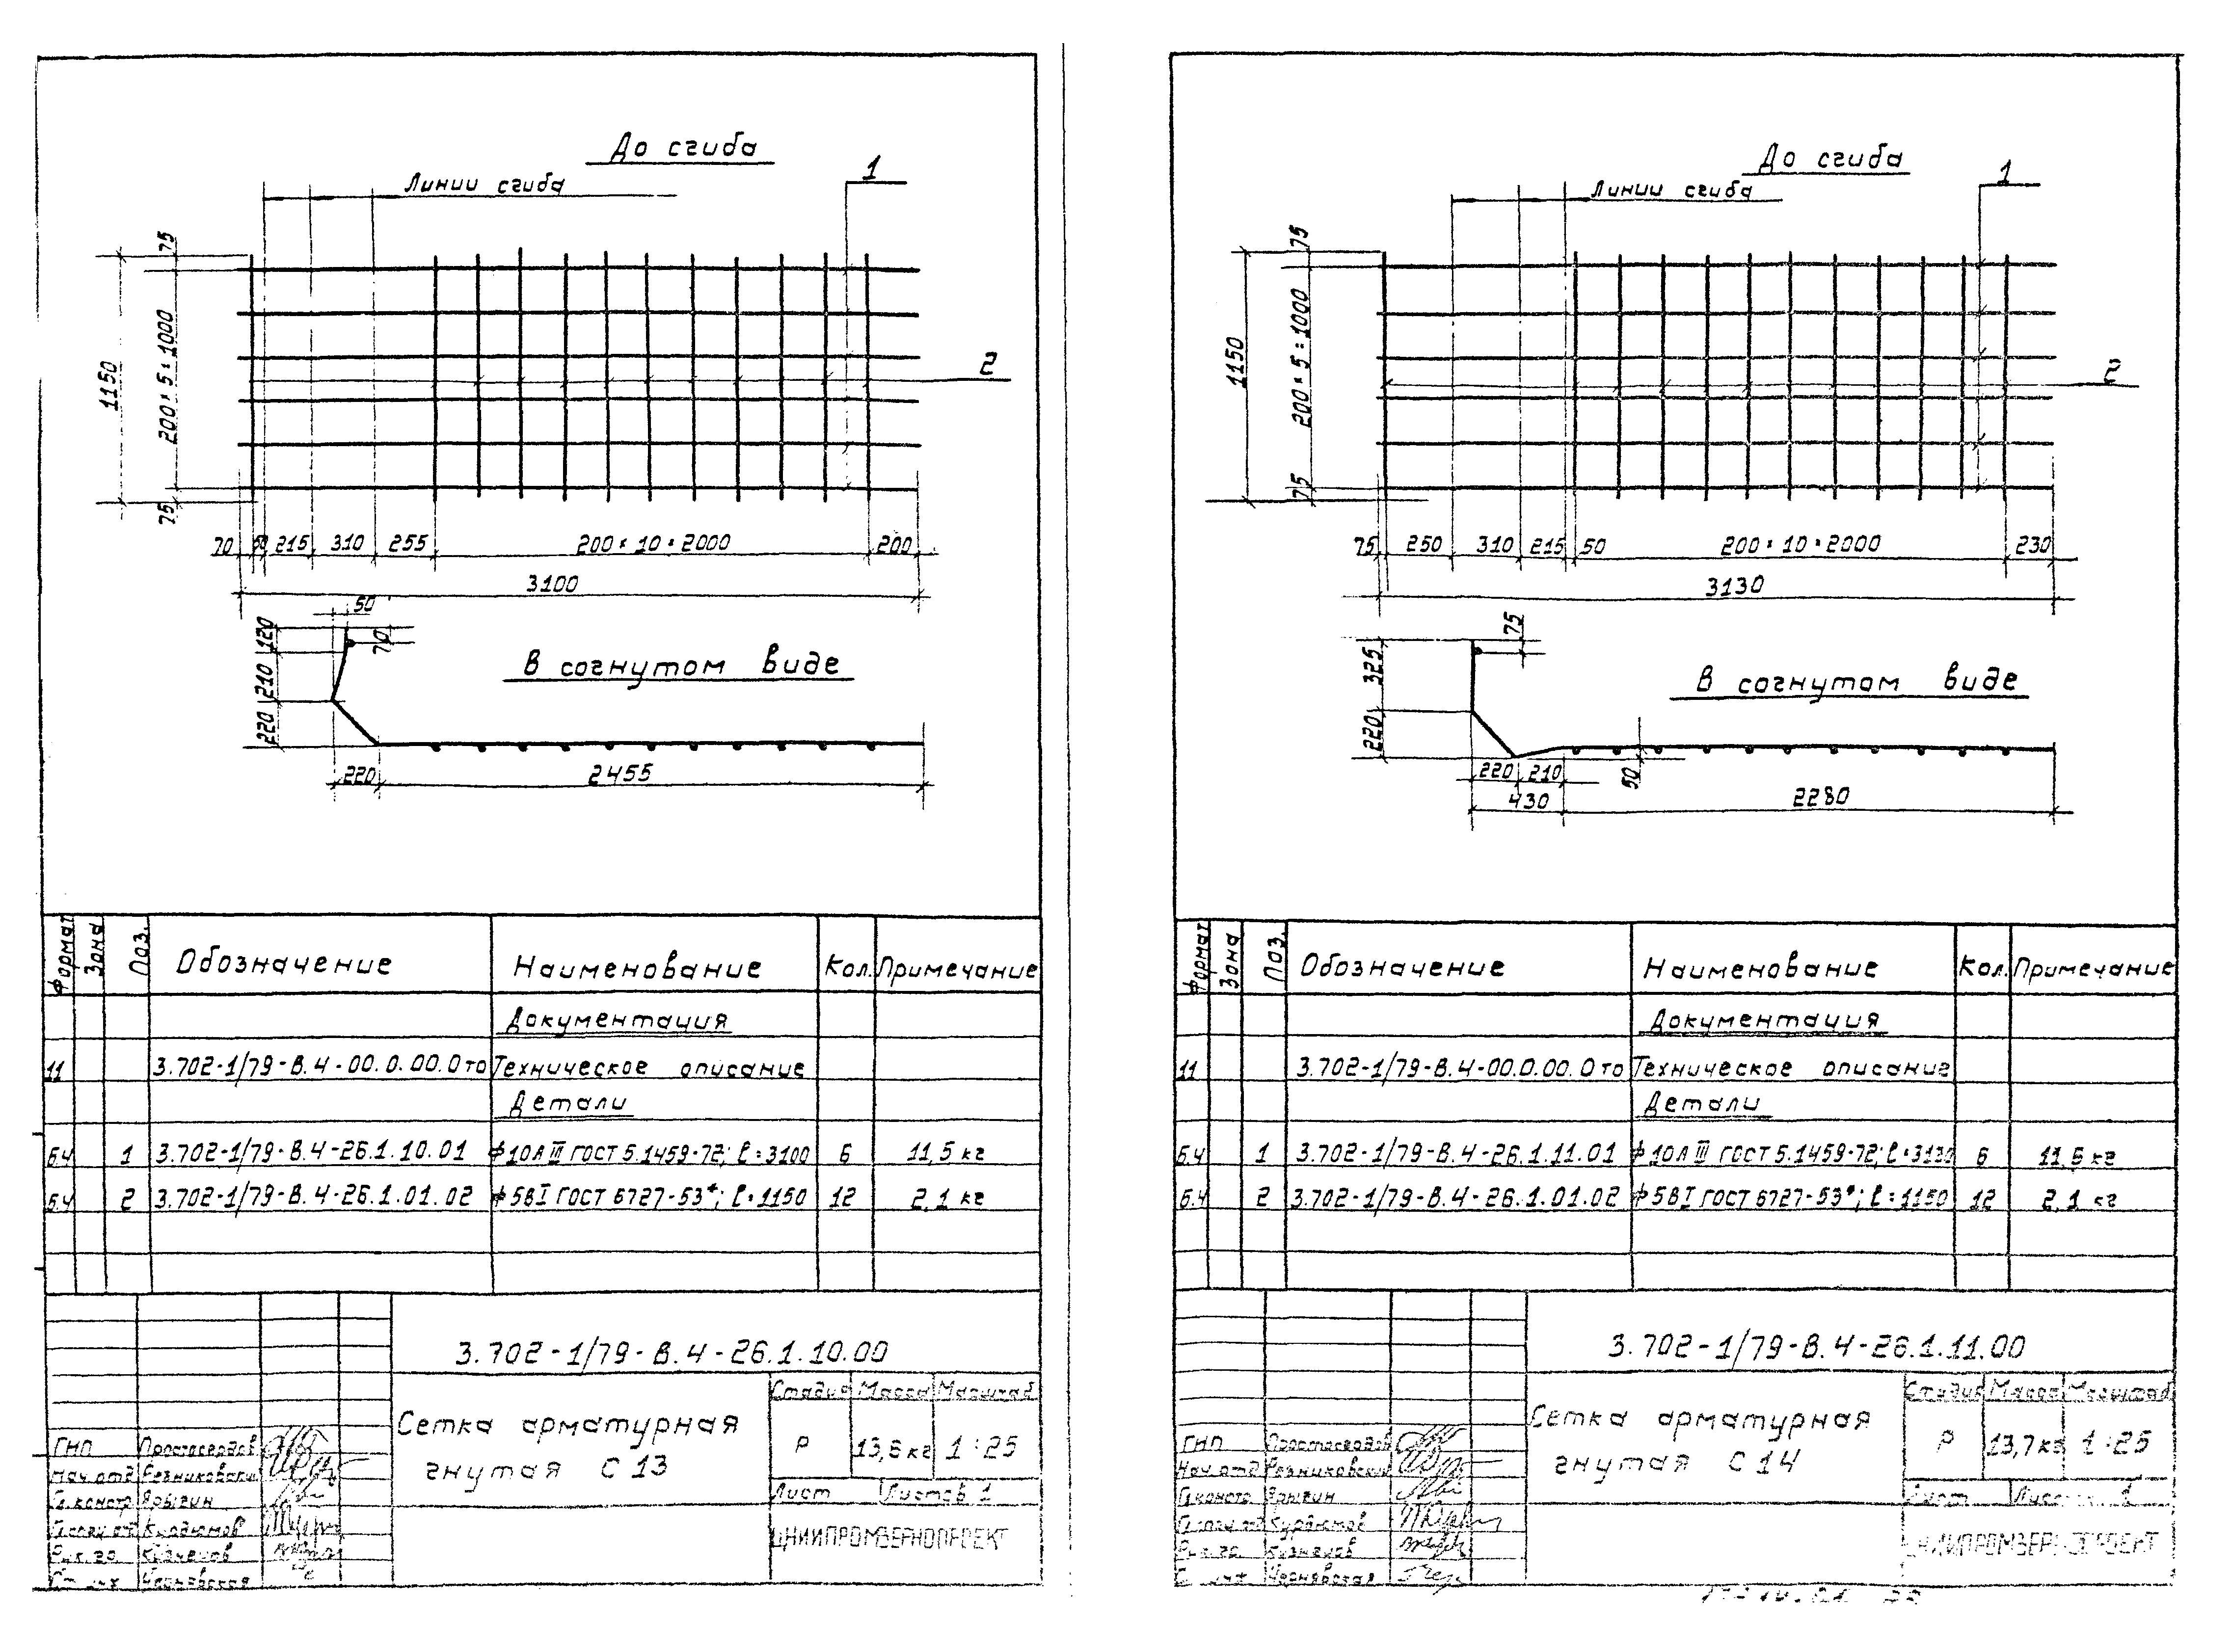 До сгиба
Линии сгиба
1
75
200×5=1000
1150
75
2
70 50 215 310 255 200×10=2000 200
3100
50
120
70
210
220
В согнутом виде
220 2455
Формат Зона Поз. Обозначение Наименование Кол. Примечание
Документация
11 3.702-1/79-В.4-00.0.00.0то Техническое описание
Детали
б.ч 1 3.702-1/79-В.4-26.1.10.01 ф10АIII ГОСТ 5.1459-72; ℓ=3100 6 11,5 кг
б.ч 2 3.702-1/79-В.4-26.1.01.02 ф5ВI ГОСТ 6727-53*; ℓ=1150 12 2,1 кг
3.702-1/79-В.4-26.1.10.00
Сетка арматурная
гнутая С13
Стадия Масса Масштаб
Р 13,6 кг 1:25
Лист Листов 1
ЦНИИПРОМЗЕРНОПРОЕКТ
ГИП Простосердов
Нач.отд Резниковский
Гл.констр Ярыгин
Курдюмов
Рук.гр Кузнецов
Ст. инж Чернявская
До сгиба
Линии сгиба
1
75
200×5=1000
1150
75
2
75 250 310 215 50 200×10=2000 230
3130
75
325
220
В согнутом виде
220 210 50
430 2280
Формат Зона Поз. Обозначение Наименование Кол. Примечание
Документация
11 3.702-1/79-В.4-00.0.00.0то Техническое описание
Детали
б.ч 1 3.702-1/79-В.4-26.1.11.01 ф10АIII ГОСТ 5.1459-72; ℓ=3130 6 11,6 кг
б.ч 2 3.702-1/79-В.4-26.1.01.02 ф5ВI ГОСТ 6727-53*; ℓ=1150 12 2,1 кг
3.702-1/79-В.4-26.1.11.00
Сетка арматурная
гнутая С14
Стадия Масса Масштаб
Р 13,7 кг 1:25
Лист Листов 1
ЦНИИПРОМЗЕРНОПРОЕКТ
ГИП Простосердов
Нач.отд Резниковский
Гл.констр Ярыгин
Курдюмов
Рук.гр Кузнецов
Ст. инж Чернявская